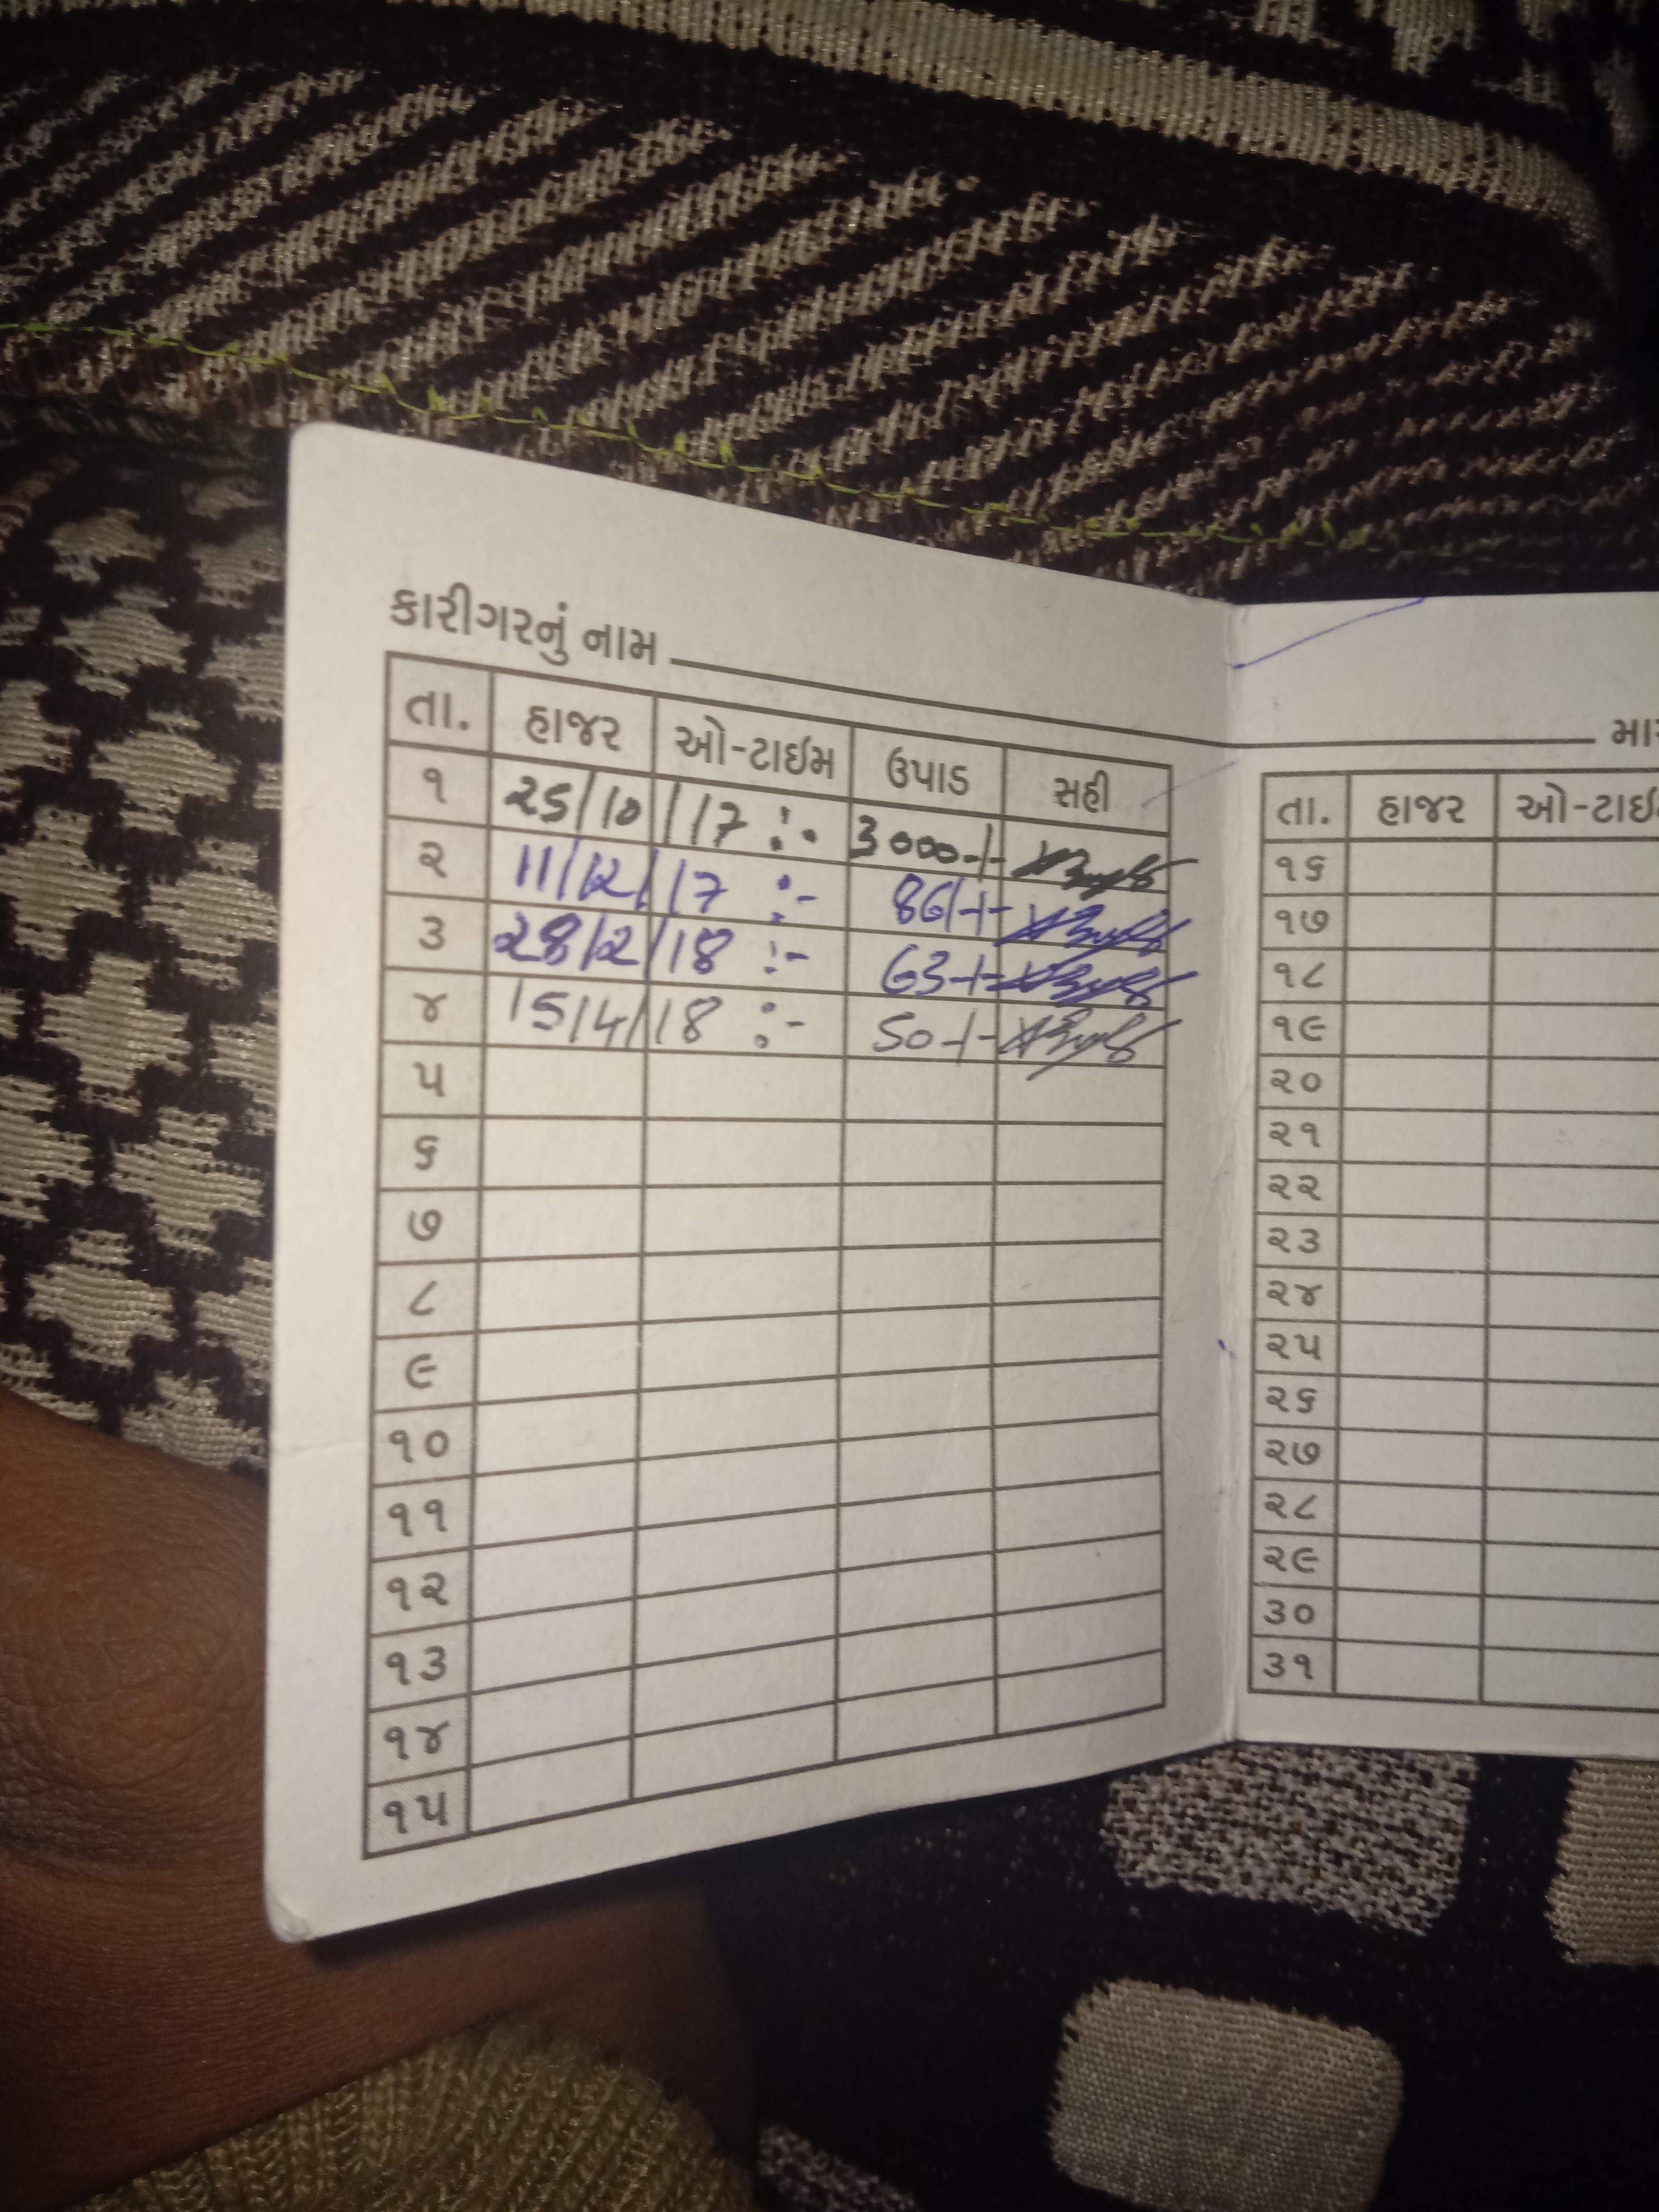 કારીગરનું નામ
તા. હાજર ઓ-ટાઈમ ઉપાડ સહી
૧ 25/10/17 :- 3000-/-
૨ 11/12/17 :- 861-/-
૩ 28/2/18 :- 63-/-
૪ 15/4/18 :- 50-/-
૫
૬
૭
૮
૯
૧૦
૧૧
૧૨
૧૩
૧૪
૧૫
તા. હાજર
૧૬
૧૭
૧૮
૧૯
૨૦
૨૧
૨૨
૨૩
૨૪
૨૫
૨૬
૨૭
૨૮
૨૯
૩૦
૩૧